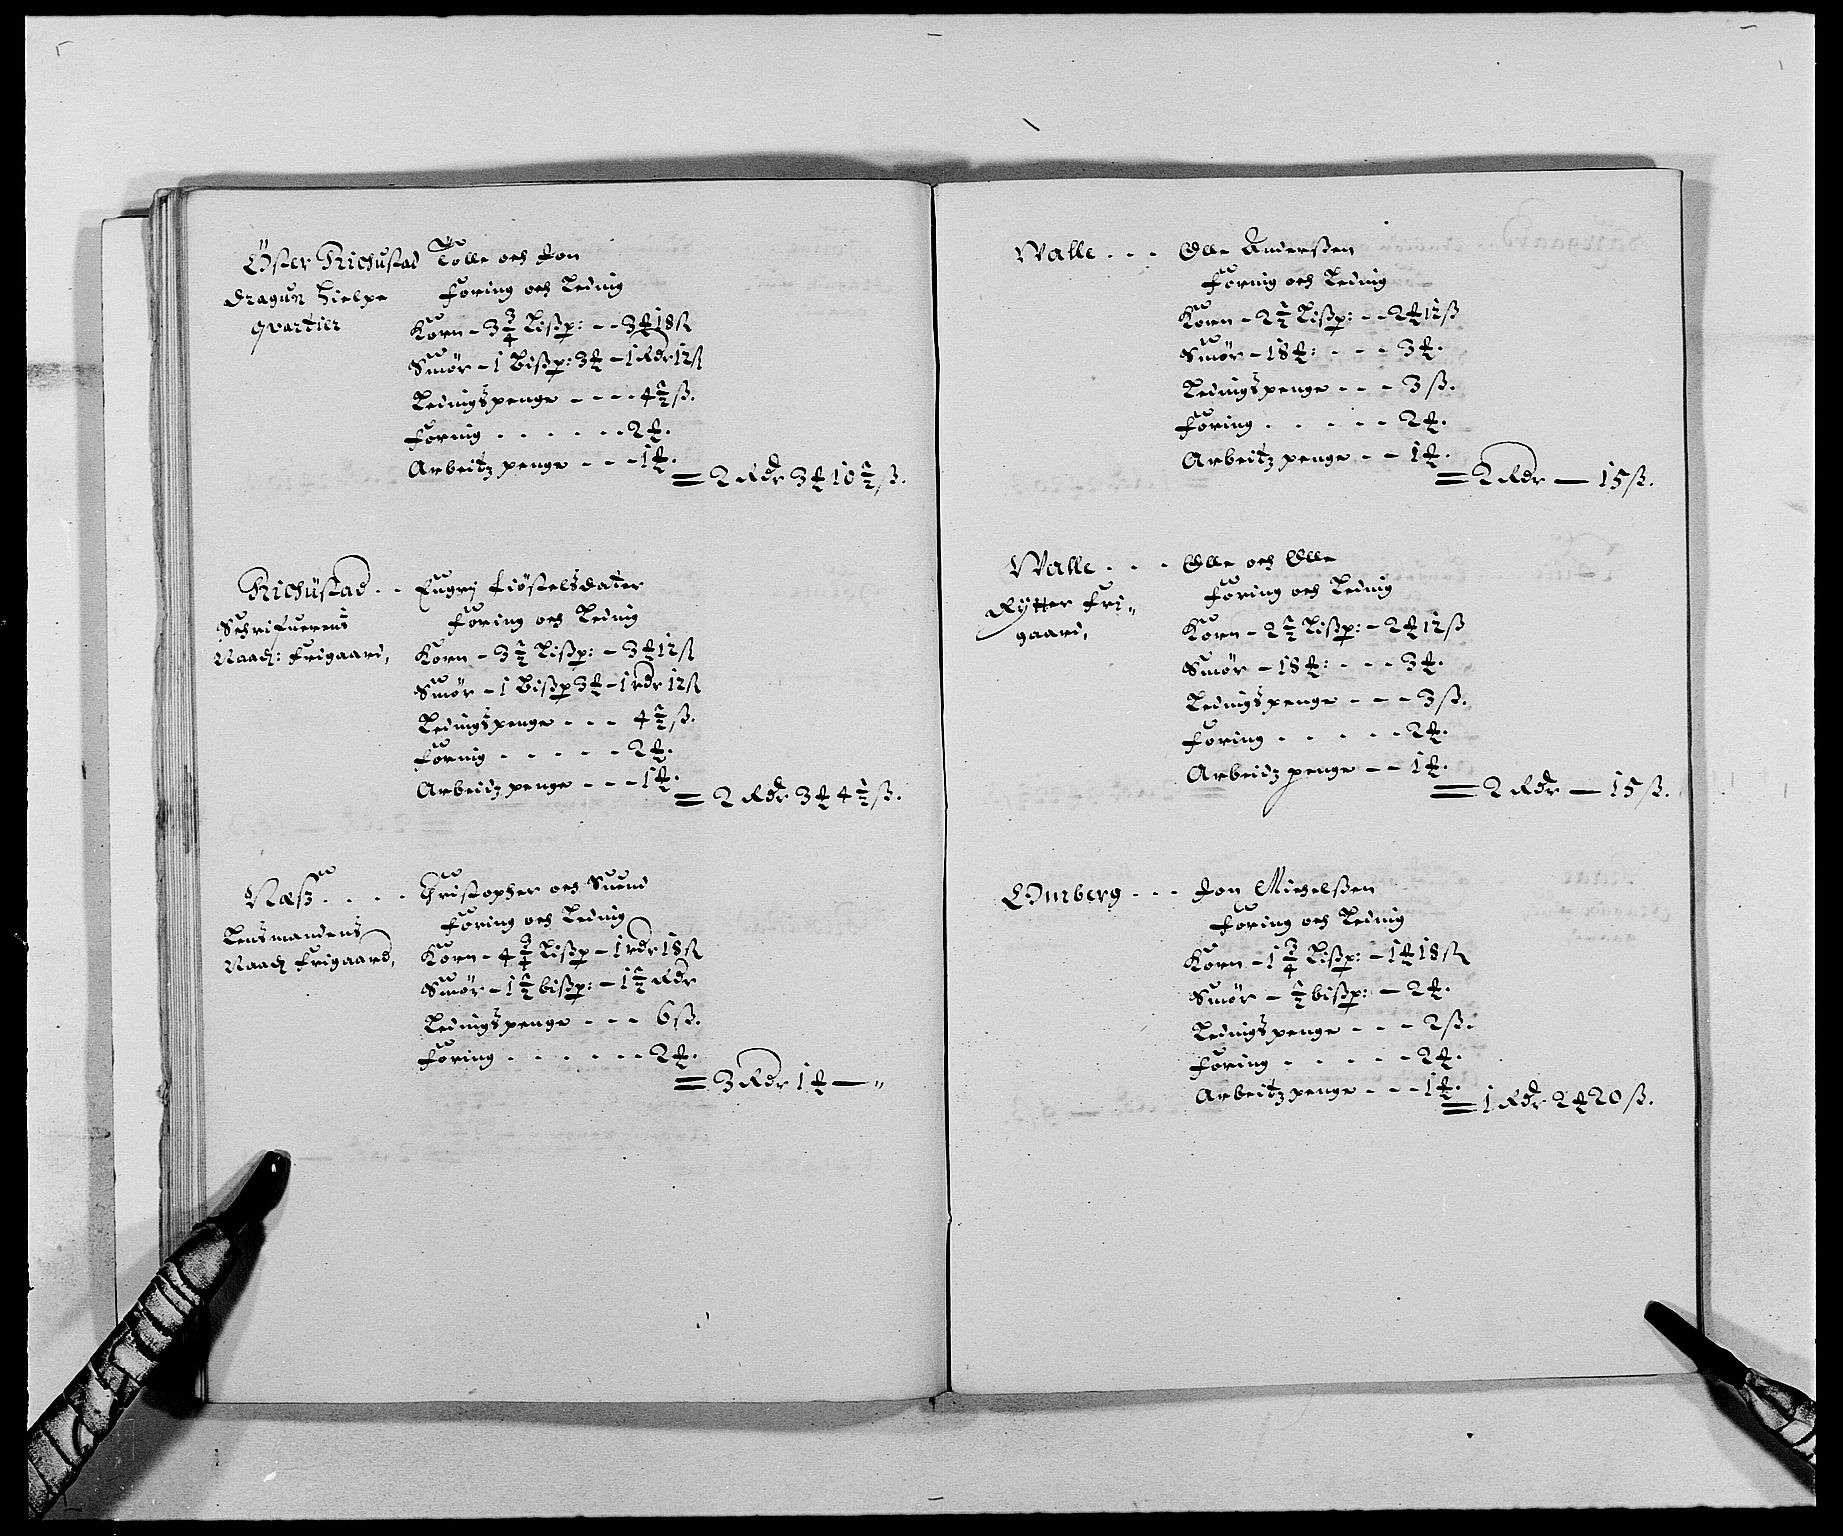 Öster Richustad Tolle och Jon
Dragun hielpe
quartier
foring och Leding
Korn - 3 3/4 Lißp: - - 3 ₰ 18 ß
Smör - 1 Bißp: 3 ₰ - 1 Rdr 12 ß
Ledingspenge - - - - 4 1/2 ß.
foring . . . . . - - 2 ₰.
Arbeitz penge - - - 1 ₰.
= 2 Rdr 3 ₰ 10 1/2 ß.
Richustad - - Kiöstelsdatter
Schrifuerens
Naads: frigaard,
foring och Leding
Korn - 3 1/2 Lißp: - 3 ₰ 12 ß
Smör - 1 Bißp 3 ₰ - 1 rdr 12 ß
Ledingspenge - - - 4 1/2 ß.
foring . . - - - - 2 ₰.
Arbeidz penge - - - 1 ₰.
= 2 Rdr 3 ₰ 4 1/2 ß.
Næß . . . . Christopher och Suend
Lensmandens
Naads frigaard,
foring och Leding
Korn - 4 3/4 Lißp - 1 rdr 18 ß
Smör - 1 1/2 bißp: - 1 1/2 Rdr
Ledingspenge - - - 6 ß.
foring . . . . . - - 2 ₰.
= 3 Rdr 1 ₰ — "
Walle . . . Olle Anderßen
foring och Leding
Korn - 2 1/2 Lißp: - - 2 ₰ 12 ß
Smör - 18 ₰: - - - 3 ₰.
Ledingspenge - - - 3 ß.
foring . . . - - 2 ₰.
Arbeitz penge - - 1 ₰.
= 2 Rdr — 15 ß.
Walle . . . Olle och Olle
Rytter fri-
gaard,
foring och Leding
Korn - 2 1/2 Lißp: - 2 ₰ 12 ß
Smör - 18 ₰: - - - 3 ₰.
Ledingspenge - - - 3 ß.
foring . . . . - - 2 ₰.
Arbeidz penge - - 1 ₰.
= 2 Rdr — 15 ß.
Omberg - - - Jon Michelßen
foring och Leding
Korn - 1 3/4 Lißp: - 1 ₰ 18 ß
Smör - 1/2 bißp: - 2 ₰.
Ledingspenge - - - 2 ß.
foring . . . . - - 2 ₰.
Arbeitz penge - - - 1 ₰.
= 1 Rdr 2 ₰ 20 ß.